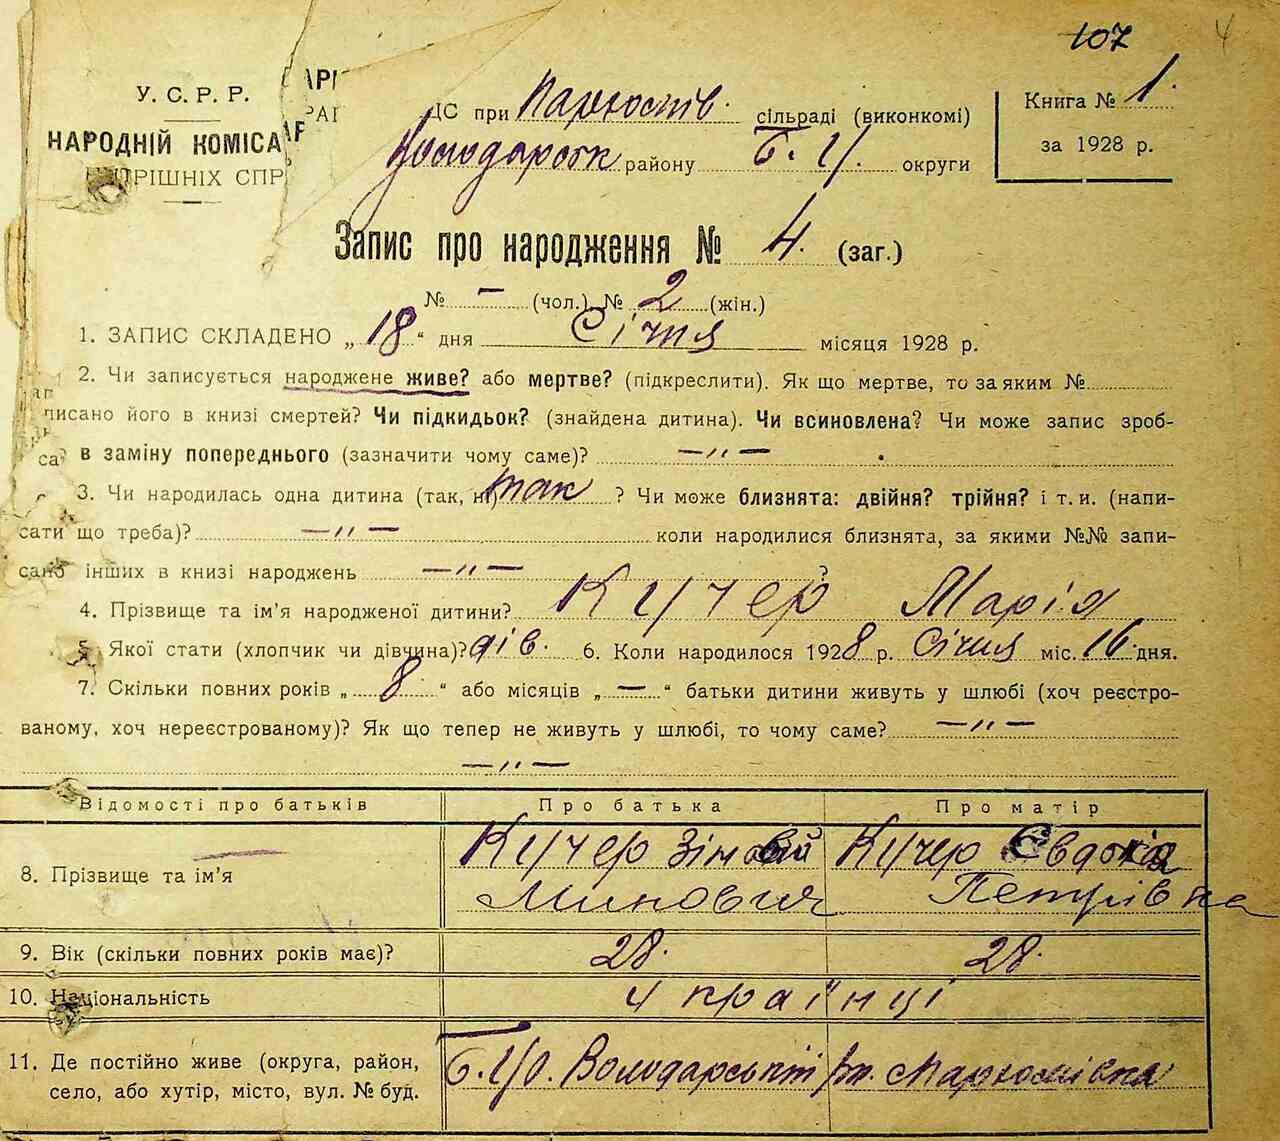 107 4
У. С. Р. Р.
НАРОДНІЙ КОМІСА
ТРІШНІХ СПР
ЦС при сільраді (виконкомі)
Володарськ району Б. Ц. округи
Книга № 1.
за 1928 р.
Запис про народження № 4. (заг.)
№ – (чол.) № 2 (жін.)
1. ЗАПИС СКЛАДЕНО „18“ дня Січня місяця 1928 р.
2. Чи записується народжене живе? або мертве? (підкреслити). Як що мертве, то за яким №
писано його в книзі смертей? Чи підкидьок? (знайдена дитина). Чи всиновлена? Чи може запис зроб-
са? в заміну попереднього (зазначити чому саме)? –„–
3. Чи народилась одна дитина (так, ні) так ? Чи може близнята: двійня? трійня? і т. и. (напи-
сати що треба)? –„– коли народилися близнята, за якими №№ запи-
сано інших в книзі народжень –„– ?
4. Прізвище та ім’я народженої дитини? Кучер Марія
5. Якої стати (хлопчик чи дівчина)? дів. 6. Коли народилося 1928 р. Січня міс. 16 дня.
7. Скільки повних років „ 8 “ або місяців „ – “ батьки дитини живуть у шлюбі (хоч реєстро-
ваному, хоч нереєстрованому)? Як що тепер не живуть у шлюбі, то чому саме? –„–
–„–
Відомості про батьків Про батька Про матір
8. Прізвище та ім’я Кучер Зіновій Кучер Євдокія
Минович Петрівна
9. Вік (скільки повних років має)? 28. 28.
10. Національність українці
11. Де постійно живе (округа, район,
село, або хутір, місто, вул. № буд.
Б. Ц. Володарський